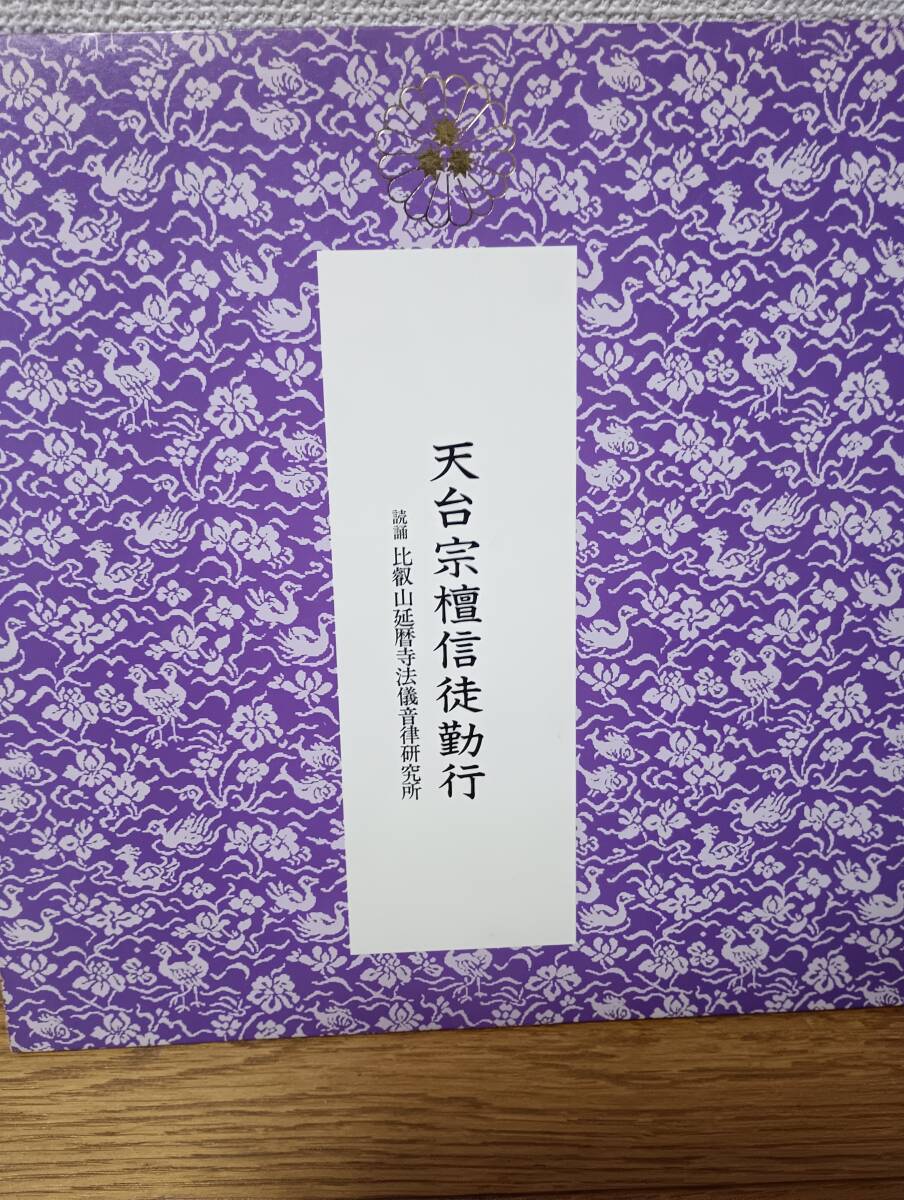 天台宗檀信徒勤行
読誦 比叡山延暦寺法儀音律研究所